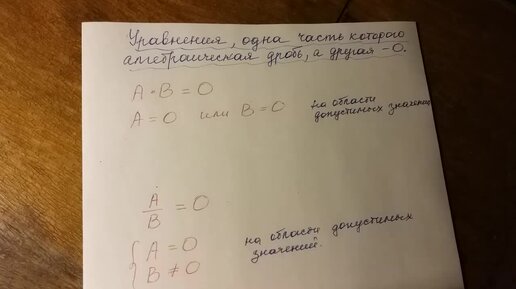 Уравнения, одна часть которого
алгебраическая дробь, а другая - 0.
A · B = 0
A = 0 или B = 0 на области
допустимых значений
A/B = 0
{ A = 0 на области допустимых
B ≠ 0 значений.